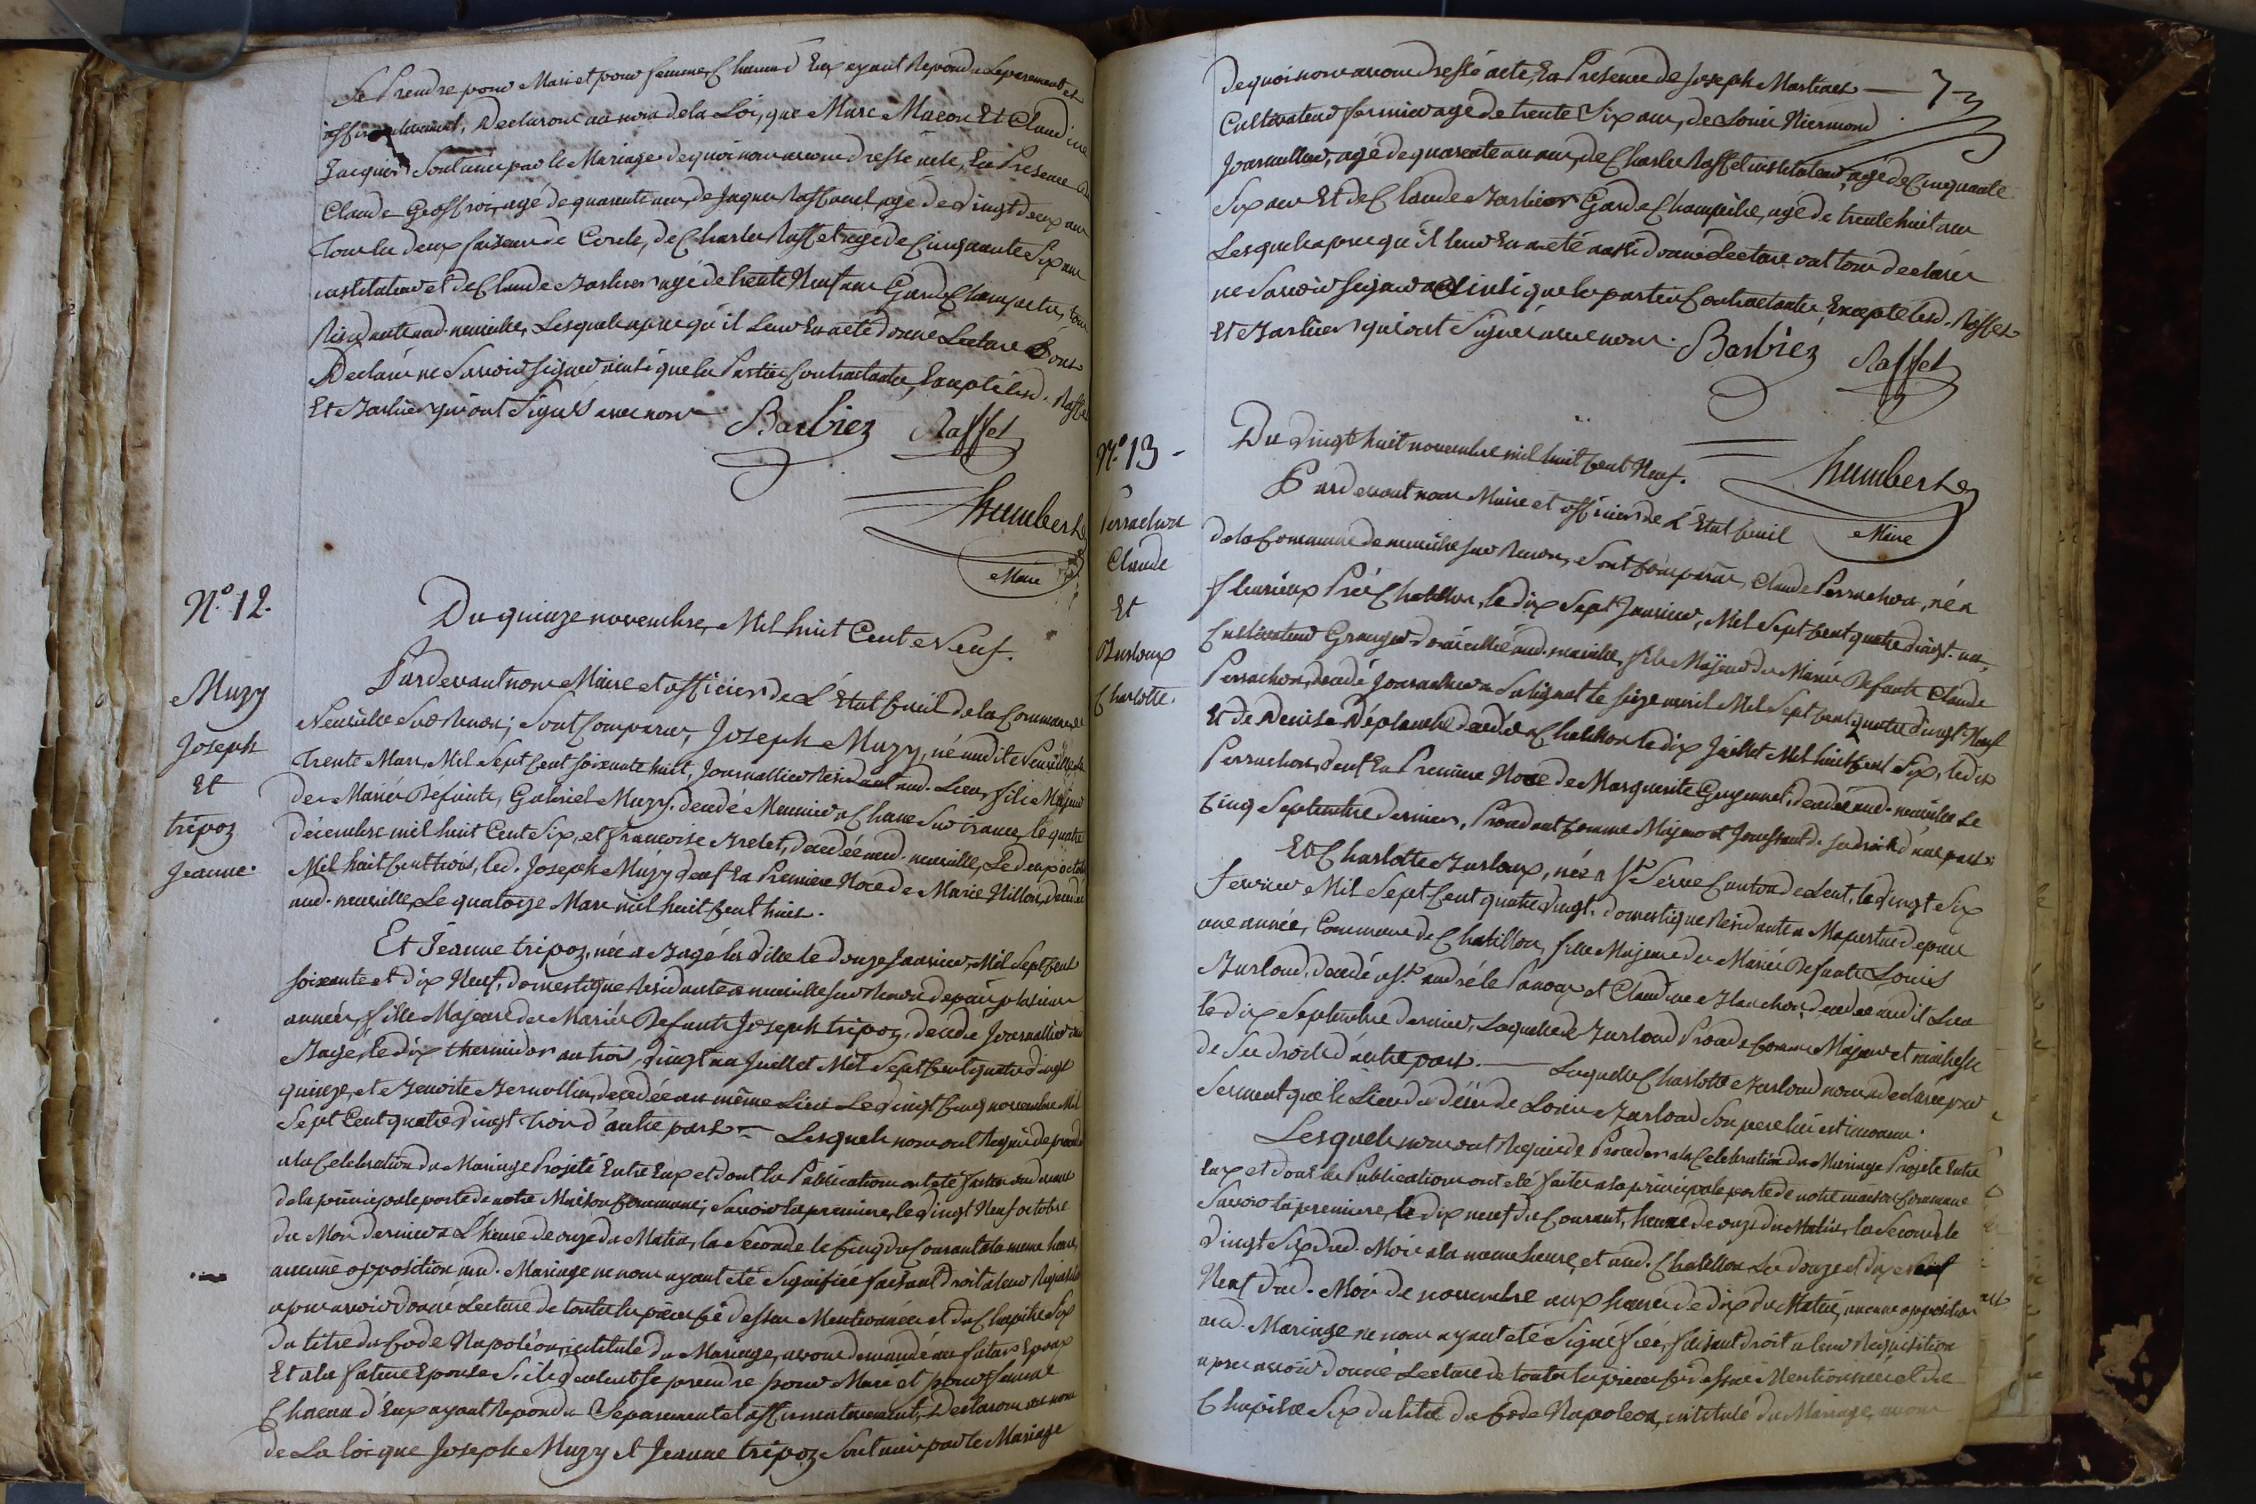 Se Prendre pour Mari et pour femme, Chacun d'Eux ayant Repondu Separement et
affirmativement, Declarons au nom de la Loi, que Marc Macon Et Claudine
Jacquier Sont unis par le Mariage de quoi nous avons dressé acte, En Presence de
Claude Geoffroi, agé de quarante ans, de Jaques Raffanel, agé de vingt deux ans
Tous les deux faiseurs de Cercle, de Charles Raffet agé de Cinquante Six ans
instituteur et de Claude Barbier agé de trente Neuf ans Garde Champetre, tous
Residants aud. neuville, Lesquels apres qu'il Leur En a eté donné Lecture Sont
Declaré ne Savoir Signer ainsi que les Parties Contractantes, Excepté lesd. Raffet
Et Barbier qui ont Signés avec nous
Barbiez Raffet
humbert
Maire
N.° 12.
Muzy
Joseph
Et
tripoz
Jeanne.
Du quinze novembre, Mil huit Cent Neuf.
Pardevant nous Maire et officier de L'Etat Civil de la Commune de
Neuville Sur Renon; Sont Comparus, Joseph Muzy, né audit Neuville le
Trente Mars, Mil Sept Cent Soixante huit, Journallier Residant aud. Lieu, fils Majeur
des Mariés Défunts, Gabriel Muzy, decedé Meunier a Chane Sur irance, le quatre
décembre mil huit Cent Six, et francoise Brelet, decedée aud. neuville, Le deux octobre
Mil huit Cent trois, led. Joseph Muzy veuf En Premiere Noce de Marie Nillon, decedée
aud. neuville, Le quatorze Mars mil huit Cent huit.
Et Jeanne tripoz, née a Bagé la ville le douze Janvier, Mil Sept Cent
Soixante et dix Neuf, domestique Residante a neuville Sur Renon depuis plusieurs
années, fille Majeure des Mariés Defunts Joseph tripoz, decedé Journallier aud.
Bagé, le dix thermidor an trois, vingt un Juillet Mil Sept Cent quatre vingt
quinze, et Benoite Bernollin, decedée au même Lieu Le vingt Cinq novembre Mil
Sept Cent quatre vingt trois d'autre part — Lesquels nous ont Requis de proceder
a la Celebration du Mariage Projeté Entre Eux et dont les Publications ont été faites au devant
de la principale porte de notre Maison Commune; Savoir la premiere, le vingt Neuf octobre
du Mois dernier a L'heure de onze du Matin, la Seconde le Cinq du Courant a la meme heure,
aucune opposition aud. Mariage ne nous ayant été Signifiée faisant droit a leur Requisition
apres avoir donné Lecture de toutes les pieces Ci dessus Mentionnées et du Chapitre Six
du titre du Code Napoléon, intitulé du Mariage, avons demandé au futur Epoux
Et a la future Epouse S'ils veulent se prendre pour Mari et pour femme
Chacun d'Eux ayant Repondu Separement et affirmativement, Declarons au nom
de La loi que Joseph Muzy et Jeanne tripoz Sont unis par le Mariage
73
De quoi nous avons dressé acte, En Presence de Joseph Martinet —
Cultivateur fermier agé de trente Six ans, de Louis Niermond
Journallier, agé de quarante un ans, de Charles Raffet instituteur, agé de Cinquante
Six ans Et de Claude Barbier Garde Champetre, agé de trente huit ans
Lesquels apres qu'il leur En a eté aussi donné Lecture ont tous declarés
ne Savoir Signer ainsi que les parties Contractantes, Excepté lesd. Raffet
Et Barbier qui ont Signés avec nous.
Barbiez Raffet
humbert
Maire
N.° 13 -
Perrachon
Claude
Et
Burloux
Charlotte.
Du vingt huit novembre mil huit Cent Neuf.
Pardevant nous Maire et officier de L'Etat Civil
de la Commune de neuville Sur Renon, Sont Comparus, Claude Perrachon, né a
fleurieux Près Chatillon, le dix Sept Janvier, Mil Sept Cent quatre vingt un,
Cultivateur Granger domicillié aud. neuville, fils Majeur des Mariés Defunts Claude
Perrachon, decedé Journallier a Sulignat le Seize avril Mil Sept Cent quatre vingt Neuf
Et de Denise Déplanche decedée a Chatillon le dix Juillet Mil huit Cent Six, ledit
Perrachon, veuf En Premiere Noce de Marguerite Guyonnet, decedée aud. neuville Le
Cinq Septembre dernier, Procedant Comme Majeur et Jouissant de ses droits d'une part.
Et Charlotte Burloux, née a St. Serve Canton de Lent, le vingt Six
fevrier Mil Sept Cent quatre vingt, domestique Residante a Mapertuis depuis
une année, Commune de Chatillon, fille Majeure des Mariés Defunts Louis
Burloud, decedé a St. andré le Panoux et Claudine Blanchon, decedée audit Lieu
le dix Septembre dernier, Laquelle de Burloud Procede Comme Majeure et maitresse
de Ses droits d'autre part. — Laquelle Charlotte Burloud nous a declaré par
Serment que le Lieu du décés de Louis Burloud Son pere lui est inconnu.
Lesquels nous ont Requis de Proceder a la Celebration du Mariage Projeté Entre
Eux et dont les Publications ont été faites a la principale porte de notre maison Commune
Savoir la premiere, le dix neuf du Courant, heure de onze du Matin, la Seconde le
vingt Six dud. Mois a la meme heure, et aud. Chatillon Les douze et dix
Neuf dud. Mois de novembre aux heures de dix du Matin, aucune opposition
aud. Mariage ne nous ayant été Signiffiée, faisant droit a leur Requisition
apres avoir donné Lecture de toutes les pieces Ci dessus Mentionnées et du
Chapitre Six du titre du Code Napoleon, intitulé du Mariage, avons